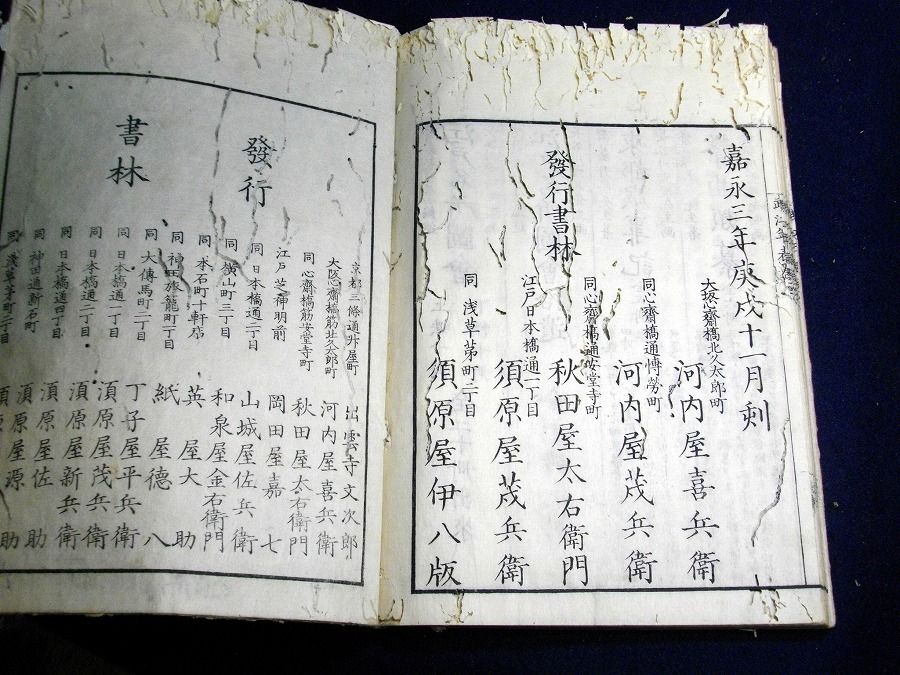 嘉永三年庚戌十一月刻
大坂心齋橋北久太郎町
河内屋喜兵衛
同心齋橋通博勞町
河内屋茂兵衛
同心齋橋通安堂寺町
秋田屋太右衛門
發行書林
江戸日本橋通一丁目
須原屋茂兵衛
同 淺草茅町二丁目
須原屋伊八版
京都三條通升屋町
出雲寺文次郎
大阪心齋橋筋北久太郎町
河内屋喜兵衛
同心齋橋筋安堂寺町
秋田屋太右衛門
江戸芝神明前
岡田屋嘉七
發行
同 日本橋通二丁目
山城屋佐兵衛
同 横山町三丁目
和泉屋金右衛門
同 本石町十軒店
英屋大助
同 神田旅籠町二丁目
紙屋德八
同 大傳馬町二丁目
丁子屋平兵衛
書林
同 日本橋通一丁目
須原屋茂兵衛
同 日本橋通二丁目
須原屋新兵衛
同 日本橋通四丁目
須原屋佐助
同 神田通新石町
須原屋源助
同 淺草茅町二丁目